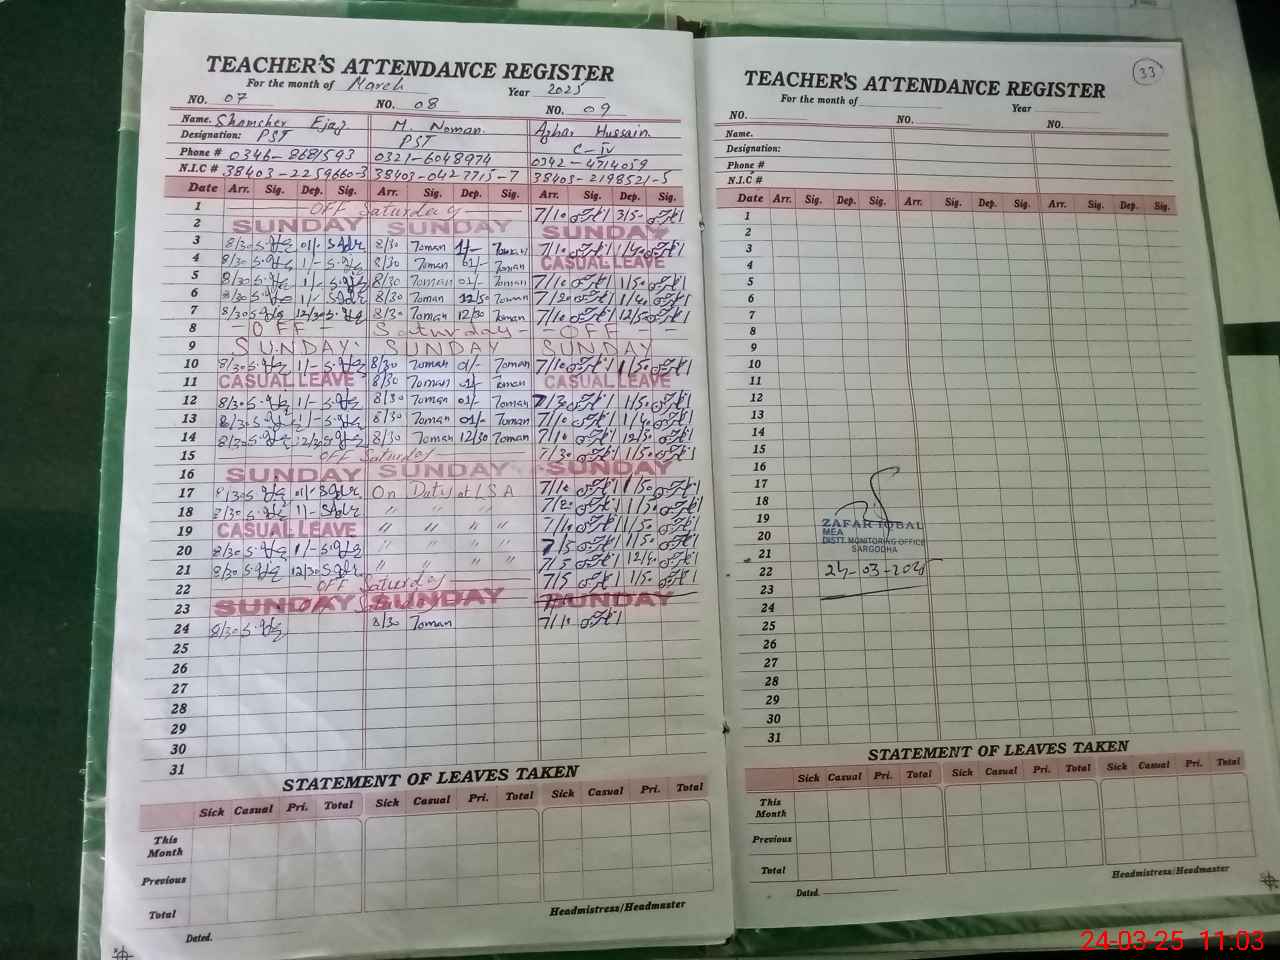 TEACHER'S ATTENDANCE REGISTER
For the month of March Year 2025
NO. 07 NO. 08 NO. 09
Name. Shamsher Ejaz M. Noman. Azhar Hussain
Designation: PST PST C-IV
Phone # 0346-8681593 0321-6048974 0342-4714059
N.I.C # 38403-2259660-3 38403-0427715-7 38403-2198521-5
Date Arr. Sig. Dep. Sig. Arr. Sig. Dep. Sig. Arr. Sig. Dep. Sig.
1 OFF Saturday 7/10 3/5-
2 SUNDAY SUNDAY SUNDAY
3 8/30 01/- 8/30 Toman 1/- Toman 7/10 1/40
4 8/30 1/- 8/30 Toman 01/- Toman CASUAL LEAVE
5 8/30 1/- 8/30 Toman 01/- Toman 7/10 1/50
6 8/30 1/- 8/30 Toman 12/50 Toman 7/20 1/40
7 8/30 12/30 8/30 Toman 12/30 Toman 7/10 12/50
8 - OFF - Saturday - OFF -
9 SUNDAY SUNDAY SUNDAY
10 8/30 1/- 8/30 Toman 01/- Toman 7/10 1/50
11 CASUAL LEAVE 8/30 Toman 01/- Toman CASUAL LEAVE
12 8/30 1/- 8/30 Toman 01/- Toman 7/30 1/50
13 8/30 1/- 8/30 Toman 01/- Toman 7/10 1/40
14 8/30 12/30 8/30 Toman 12/30 Toman 7/10 12/50
15 OFF Saturday 7/30 1/50
16 SUNDAY SUNDAY SUNDAY
17 8/30 01/- On Duty at LSA 7/10 1/50
18 8/30 1/- " " " " 7/20 1/50
19 CASUAL LEAVE " " " " 7/10 1/50
20 8/30 1/- " " " " 7/5 1/50
21 8/30 12/30 " " " " 7/5 12/50
22 OFF Saturday 7/5 1/50
23 SUNDAY SUNDAY SUNDAY
24 8/30 8/30 Toman 7/10
25
26
27
28
29
30
31
STATEMENT OF LEAVES TAKEN
Sick Casual Pri. Total Sick Casual Pri. Total Sick Casual Pri. Total
This Month
Previous
Total
Headmistress/Headmaster
Dated.
33
TEACHER'S ATTENDANCE REGISTER
For the month of Year
NO. NO. NO.
Name.
Designation:
Phone #
N.I.C #
Date Arr. Sig. Dep. Sig. Arr. Sig. Dep. Sig. Arr. Sig. Dep. Sig.
1
2
3
4
5
6
7
8
9
10
11
12
13
14
15
16
17
18
19 ZAFAR IQBAL
20 MEA
DISTT. MONITORING OFFICE
21 SARGODHA
22 24-03-2025
23
24
25
26
27
28
29
30
31
STATEMENT OF LEAVES TAKEN
Sick Casual Pri. Total Sick Casual Pri. Total Sick Casual Pri. Total
This Month
Previous
Total
Headmistress/Headmaster
Dated.
24-03-25 11.03